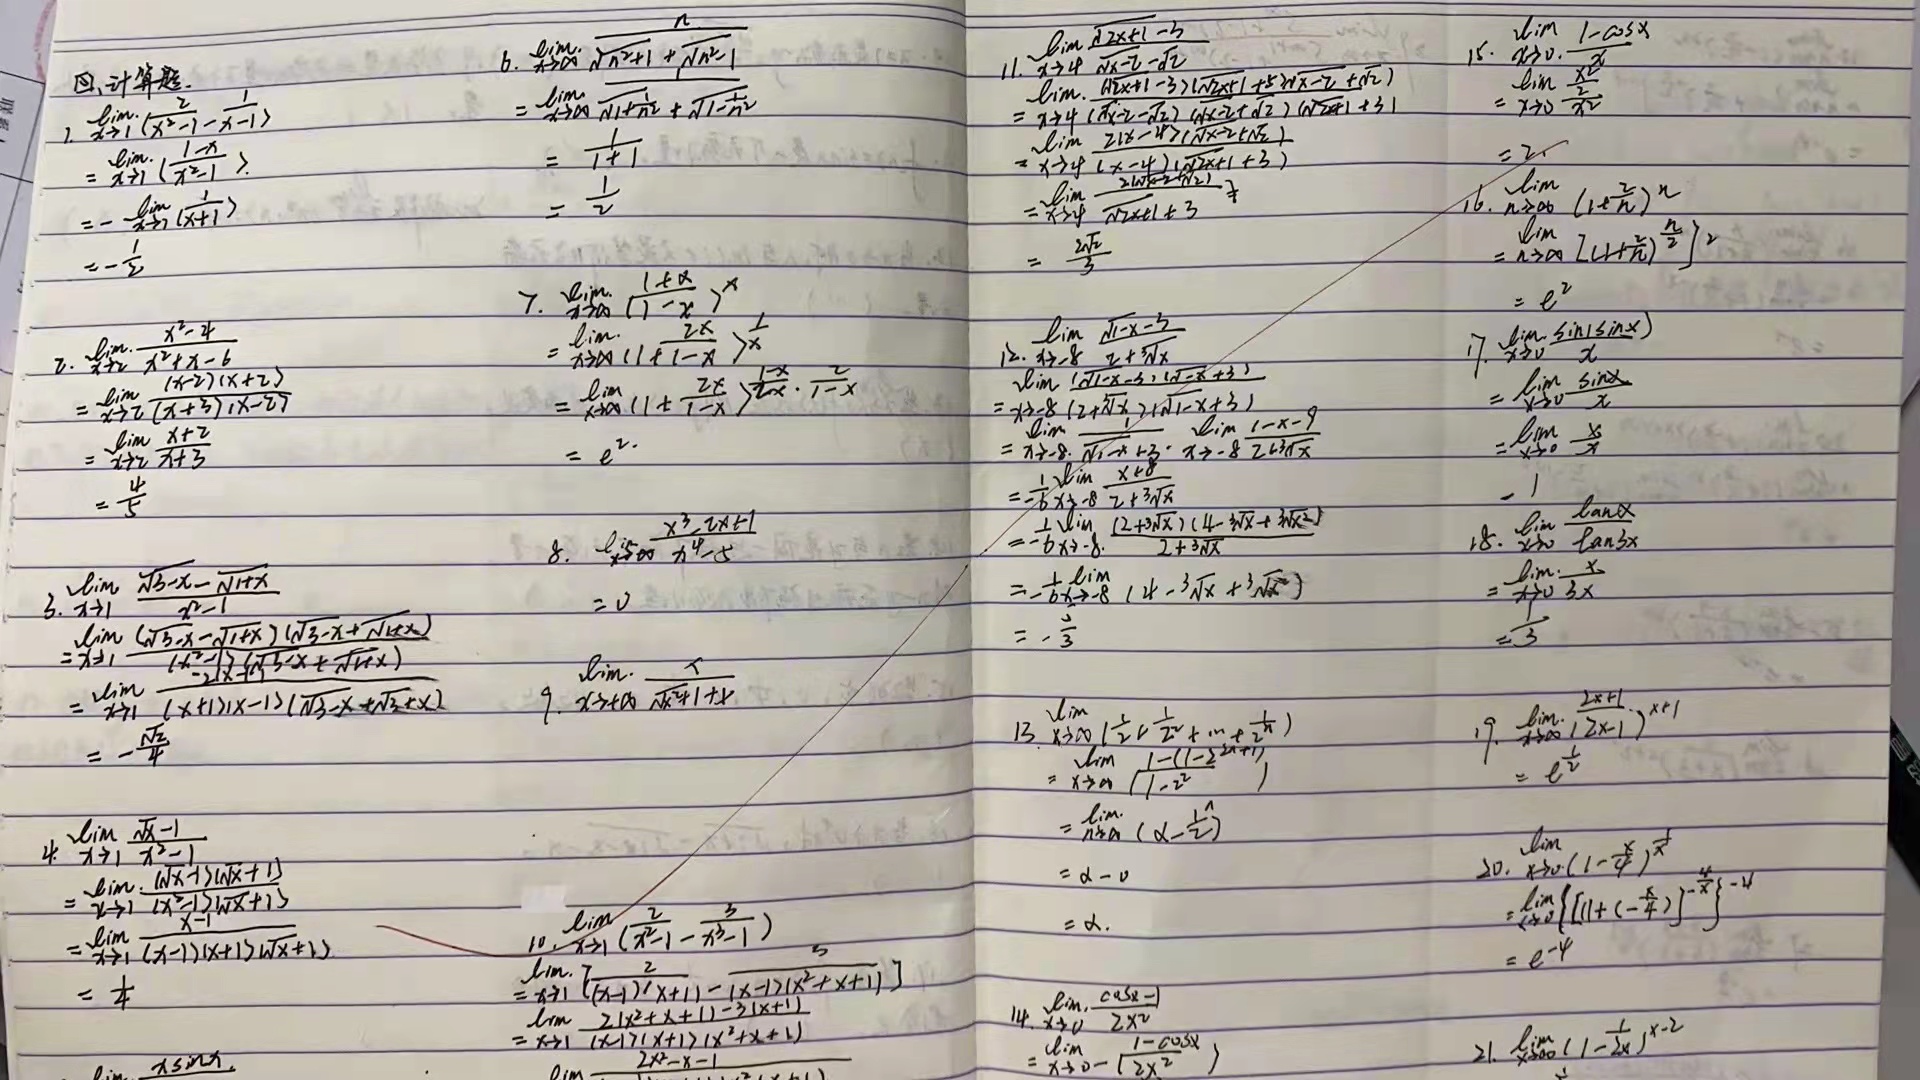 四、计算题.
1. lim x→1 (2/(x²-1) - 1/(x-1))
= lim x→1 ((1-x)/(x²-1)).
= -lim x→1 (1/(x+1))
= -1/2
2. lim x→2 (x²-4)/(x²+x-6)
= lim x→2 (x-2)(x+2)/(x+3)(x-2)
= lim x→2 (x+2)/(x+3)
= 4/5
3. lim x→1 (√3-x - √1+x)/(x²-1)
= lim x→1 (√3-x - √1+x)(√3-x + √1+x)/(x²-1)(√3-x + √1+x)
= lim x→1 -2(x-1)/(x+1)(x-1)(√3-x + √3+x)
= -√2/4
4. lim x→1 (√x-1)/(x²-1)
= lim x→1 (√x-1)(√x+1)/(x²-1)(√x+1)
= lim x→1 (x-1)/(x-1)(x+1)(√x+1)
= 1/4
lim x sinx
6. lim x→∞ n/(√n²+1 + √n²-1)
= lim x→∞ 1/(√1+1/n² + √1-1/n²)
= 1/(1+1)
= 1/2
7. lim x→∞ ((1+x)/(1-x))^x
= lim x→∞ (1+2x/(1-x))^(1/x)
= lim x→∞ (1+2x/(1-x))^((1-x)/2x · 2/(1-x))
= e².
8. lim x→∞ (x³-2x+1)/(x⁴-5)
= 0
9. lim x→+∞ x/(√x²+1+x)
10. lim x→1 (2/(x²-1) - 3/(x³-1))
= lim x→1 [2/(x-1)(x+1) - 3/(x-1)(x²+x+1)]
= lim x→1 2(x²+x+1)-3(x+1)/(x-1)(x+1)(x²+x+1)
lim 2x²-x-1
11. lim x→4 (√2x+1 - 3)/(√x-2 - √2)
= lim x→4 (√2x+1 - 3)(√2x+1 + 5)(√x-2 + √2)/(√x-2 - √2)(√x-2 + √2)(√2x+1 + 3)
= lim x→4 2(x-4)(√x-2 + √2)/(x-4)(√2x+1 + 3)
= lim x→4 2(√x-2 + √2)/(√2x+1 + 3)
= 2√2/3
12. lim x→-8 (√1-x - 3)/(2+³√x)
= lim x→-8 (√1-x - 3)(√1-x + 3)/(2+³√x)(√1-x + 3)
= lim x→-8 1/(√1-x + 3) · lim x→-8 (1-x-9)/(2+³√x)
= -1/6 lim x→-8 (x+8)/(2+³√x)
= -1/6 lim x→-8 (2+³√x)(4-³√x+³√x²)/(2+³√x)
= -1/6 lim x→-8 (4-³√x+³√x²)
13. lim x→∞ (1/2 + 1/2² + … + 1/2ⁿ)
= lim x→∞
= lim n→∞
14. lim x→0 (cosx-1)/2x²
= lim x→0 -((1-cosx)/2x²)
15. lim x→0 (1-cosx)/x
= lim x→0 (x²/2)/x²
= 2.
16. lim n→∞ (1+2/n)ⁿ
= lim n→∞ [(1+2/n)^(n/2)]²
= e²
17. lim x→0 sin(sinx)/x
= lim x→0 sinx/x
= lim x→0 x/x
1
18. lim x→0 tanx/tan3x
= lim x→0 x/3x
= 1/3
19. lim x→∞ ((2x+1)/(2x-1))^(x+1)
= e^(1/2)
20. lim x→0 (1-x/4)^(1/x)
= lim x→0 {[1+(-x/4)]^(-4/x)}^-4
= e^-4
21. lim x→∞ (1-1/2x)^(x-2)